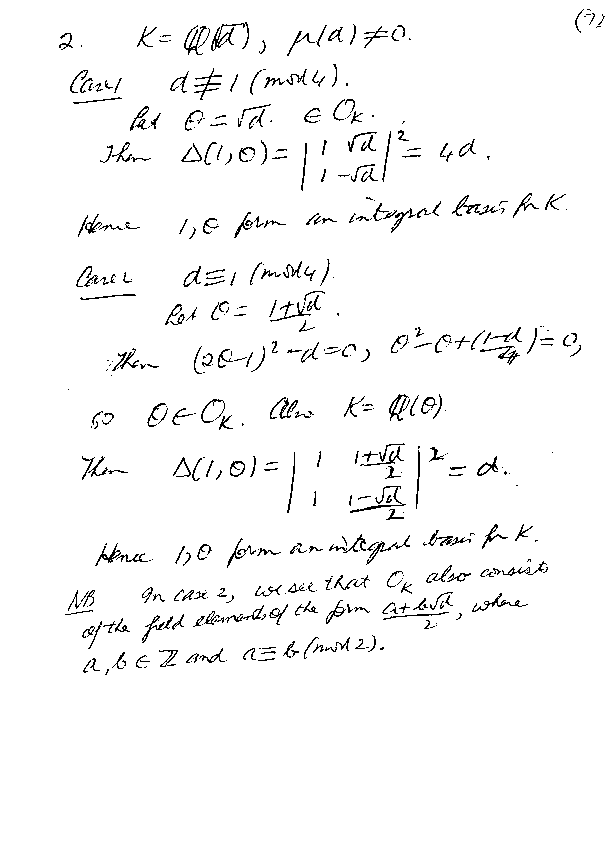 (71
2. K = Q(√d), μ(d) ≠ 0.
Case 1 d ≢ 1 (mod 4).
Let θ = √d. ∈ O_K.
Then Δ(1, θ) = | 1 √d ; 1 -√d |² = 4d.
Hence 1, θ form an integral basis for K.
Case 2 d ≡ 1 (mod 4)
Let θ = (1+√d)/2.
Then (2θ-1)² - d = 0, θ² - θ + ((1-d)/4) = 0,
so θ ∈ O_K. Also K = Q(θ)
Then Δ(1, θ) = | 1 (1+√d)/2 ; 1 (1-√d)/2 |² = d.
Hence 1, θ form an integral basis for K.
NB In case 2, we see that O_K also consists
of the field elements of the form (a+b√d)/2, where
a, b ∈ Z and a ≡ b (mod 2).